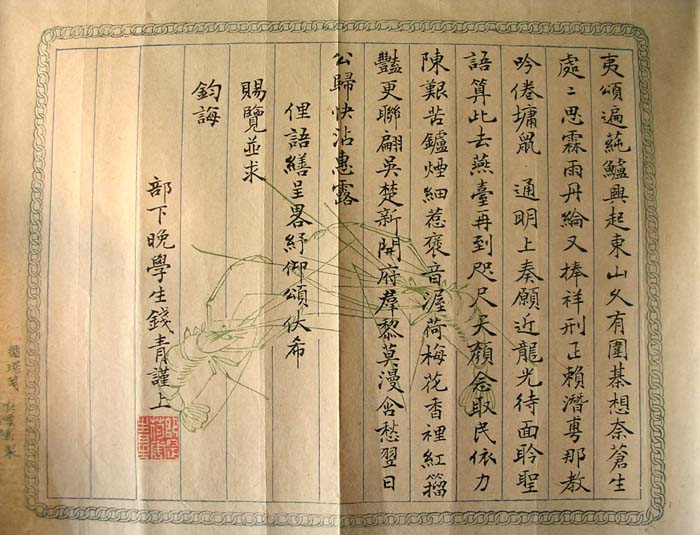 夷頌遍蒓鱸興起東山久有圍棊想奈蒼生
處〻思霖雨丹綸又捧祥刑正賴潛尃那教
吟倦墉鼠 通明上奏願近龍光待面聆聖
語算此去燕臺再到咫尺天顏念取民依力
陳艱苦鑪煙細惹褒音渥荷梅花香裡紅籀
豔更聯翩吳楚新開府羣黎莫漫含愁翌日
公歸快沾惠露
俚語繕呈畧紓仰頌伏希
賜覽並求
鈞誨
部下晚學生錢青謹上
循環箋